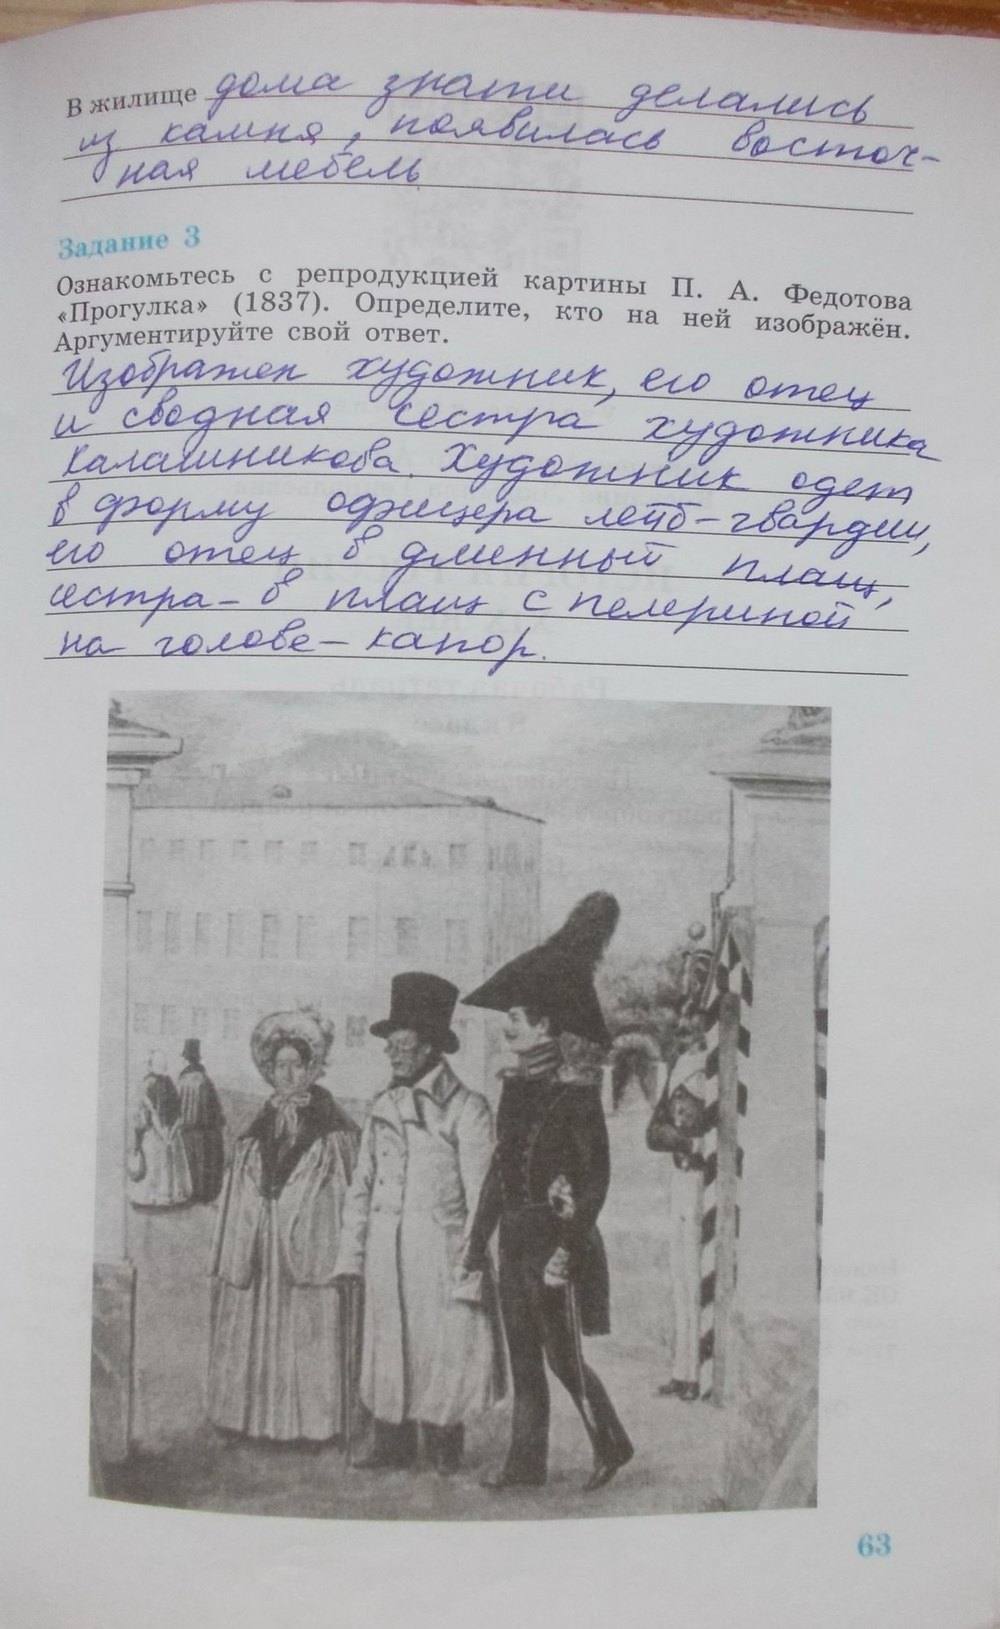 В жилище дома знати делались
из камня, появилась восточ-
ная мебель
Задание 3
Ознакомьтесь с репродукцией картины П. А. Федотова
«Прогулка» (1837). Определите, кто на ней изображён.
Аргументируйте свой ответ.
Изображен художник, его отец
и сводная сестра художника
Калашникова. Художник одет
в форму офицера лейб-гвардии,
его отец в длинный плащ,
сестра - в плащ с пелериной
на голове - капор.
63